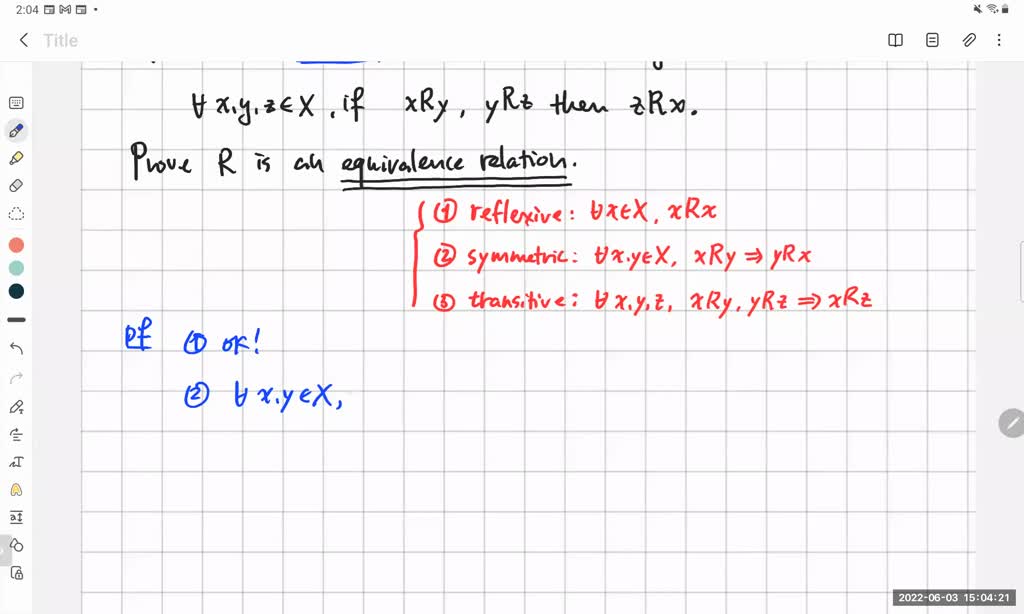 2:04
Title
∀ x,y,z ∈ X, if xRy, yRz then zRx.
Prove R is an equivalence relation.
① reflexive: ∀x∈X, xRx
② symmetric: ∀x,y∈X, xRy ⇒ yRx
③ transitive: ∀x,y,z, xRy, yRz ⇒ xRz
pf ① ok!
② ∀ x,y ∈ X,
2022-06-03 15:04:21